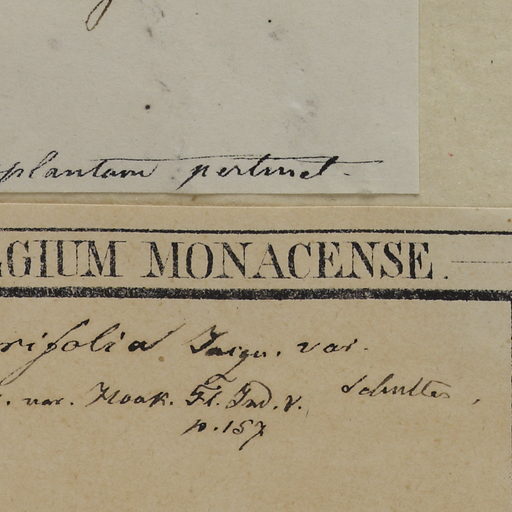 plantam pertinet.
GIUM MONACENSE.
rifolia Jacqu. var.
. var. Hook. Fl. Ind. V. Schultes,
p. 157